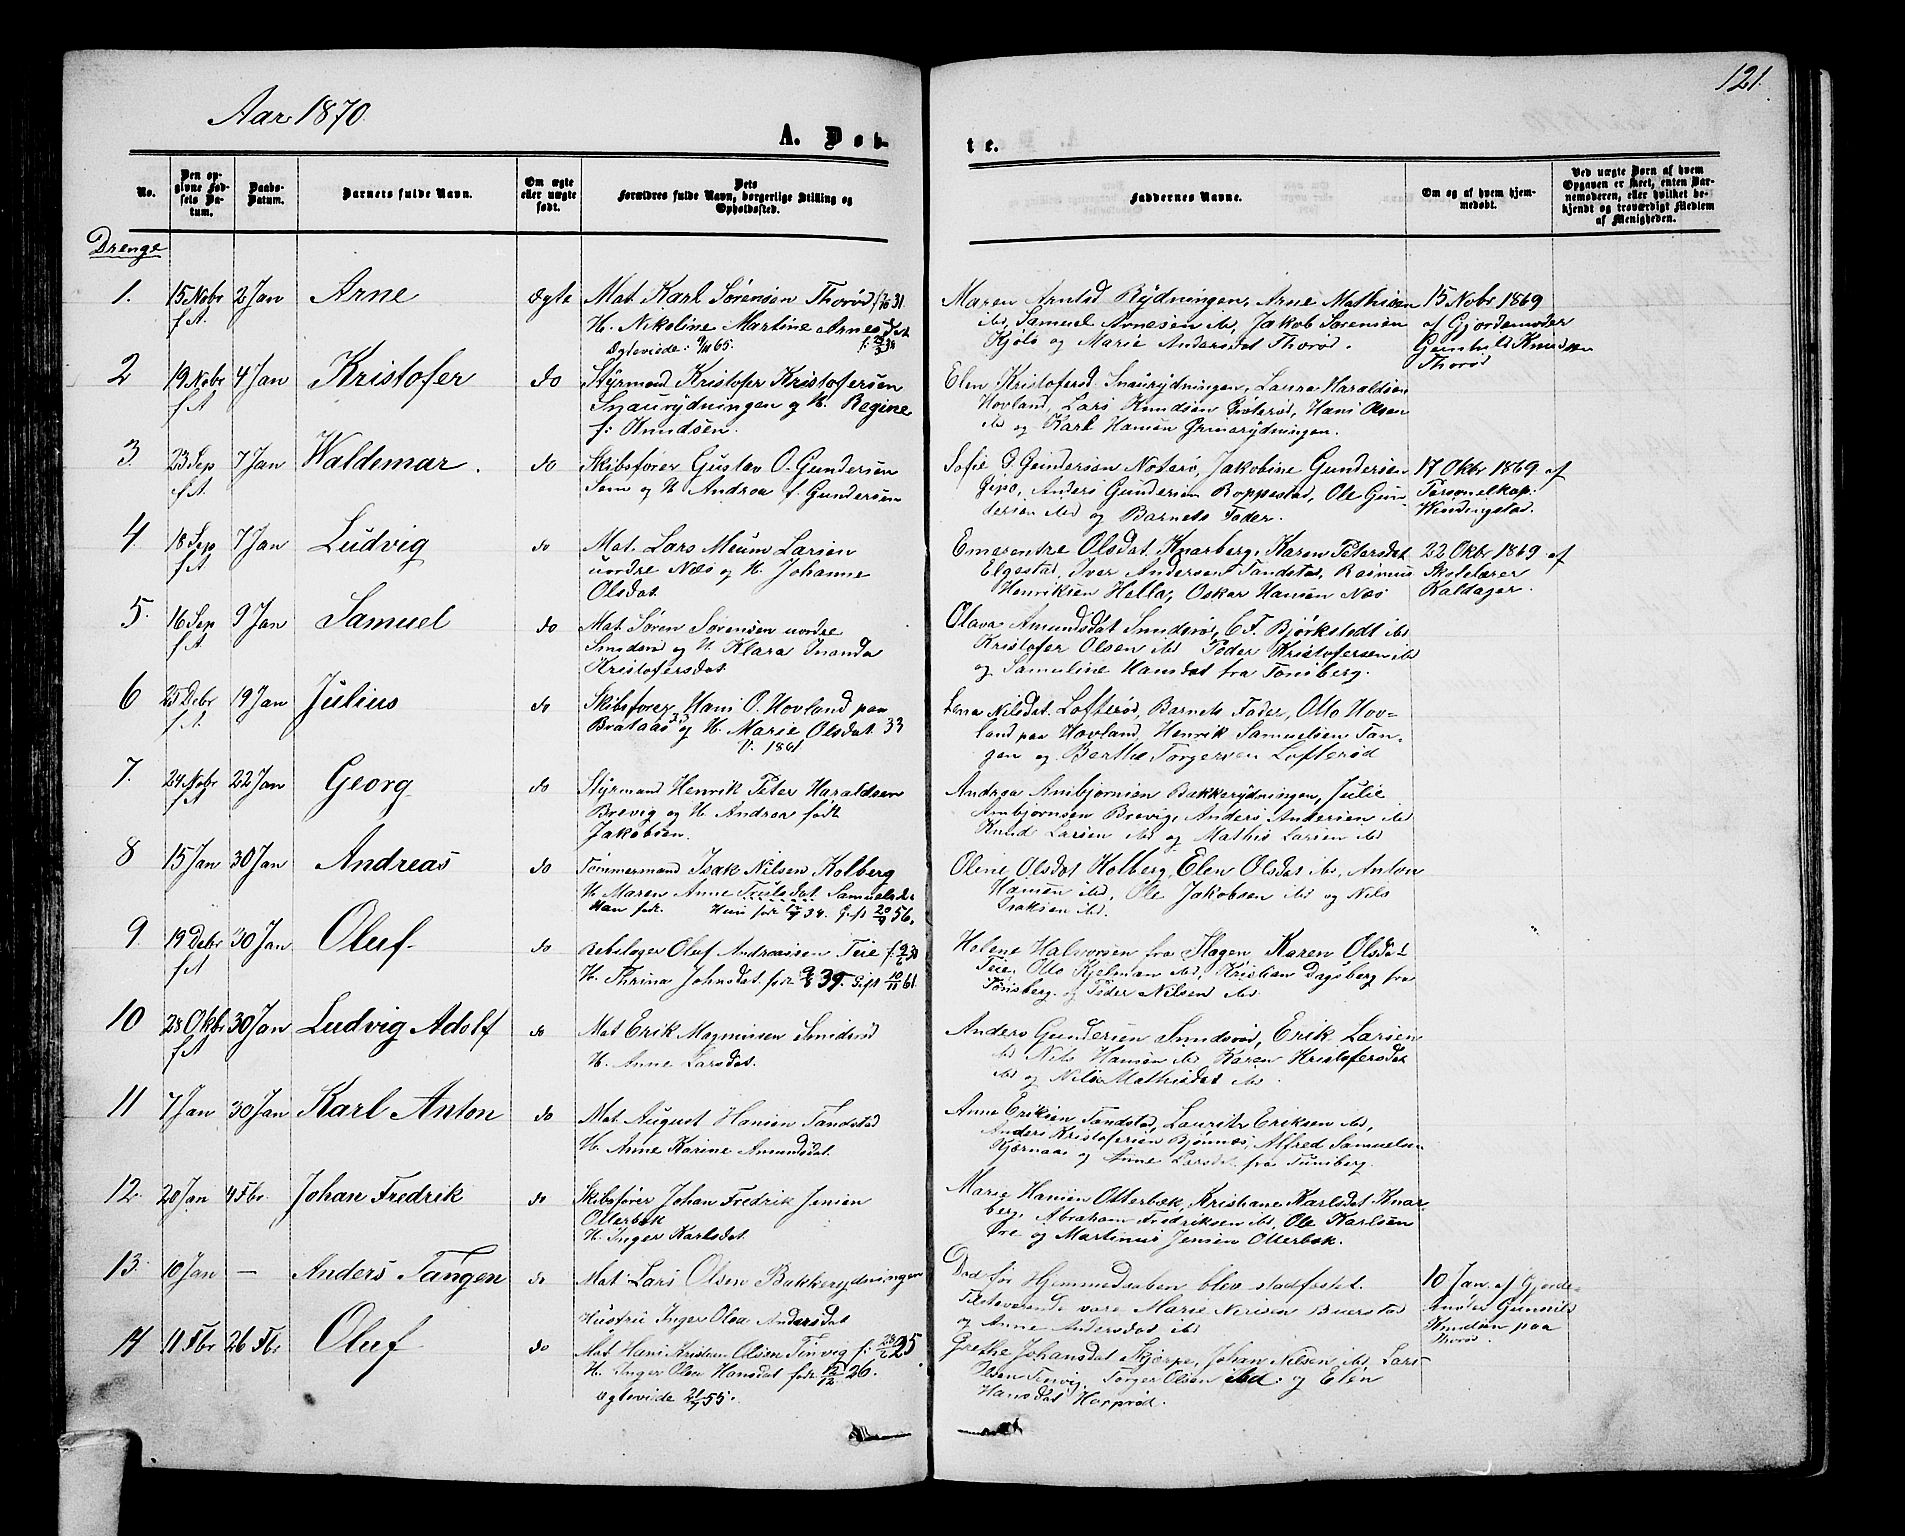 121.
Aar 1870
A. Døb-
te.
No.
Den op-
givne Fød-
sels Da-
tum.
Daabs-
Datum.
Barnets fulde Navn.
Om ægte
eller uægte
født.
Dets
Forældres fulde Navn, borgerlige Stilling og
Opholdssted.
Faddernes Navne.
Om og af hvem hjem-
medøbt.
Ved uægte Børn af hvem
Opgaven er skeet, enten Bar-
nemoderen, eller hvilket be-
kjendt og troværdigt Medlem
af Menigheden.
Drenge
1. 15 Nobr 2 Jan Arne ægte Mat. Karl Sørensen Thorød
f. A. H. Nikoline Martine Arnesdat
Ægteviede: 9/11 65.
Maren Arntsd Rydningen, Arne Mathisen
ibd, Samuel Arnesen ibd, Jakob Sørensen
Kjølø og Marie Andersdat Thorød.
15 Nobr 1869
af Gjordemoder
Gunhild Knudsen
Thorød
2 19 Nobr 4 Jan Kristofer do Styrmand Kristofer Kristofersen
f. A Snaurydningen og H. Regine
f: Knudsen.
Elen Kristofersd. Snaurydningen, Laura Haraldsen
Hovland, Lars Knudsen Hans Olsen
ibd og Karl Hansen Grimsrydningen.
3. 23 Sep 7 Jan Waldemar. do Skibsfører Gustav O. Gundersen
f. A. Sem og H Andrea f. Gundersen
Sofie G Gundersen Noterø, Jakobine Gundersen
Gipø, Anders Gundersen Roppestad, Ole Gun-
dersen ibd og Barnets Fader.
17 Oktbr 1869 af
Personelkap:
Windingstad.
4. 18 Sep 7 Jan Ludvig do Mat. Lars Meum Larsen
f A nordre Næs og H. Johanne
Olsdat.
Emerentse Olsdat. Knarberg, Karen Petersdat
Elgestad, Iver Andersen Tandstad, Rasmus
Henriksen Hella, Oskar Hansen Næs
22 Oktbr 1869 af
Skolelærer
Kaldager.
5. 16 Sep 9 Jan Samuel do Mat. Søren Sørensen nordre
f A Smidsrød og H Klara Inanda
Kristofersdat
Olava Amundsdat Smidsrød, C F. Bjørkstedt ibd
Kristofer Olsen ibd Peder Kristofersen ibd
og Samueline Hansdat fra Tønsberg.
6 25 Debr 19 Jan Julius do Skibsfører Hans O. Hovland paa
f. A. Brataas og H. Marie Olsdat. 33
V. 1861
Lena Nilsdat. Lofterød, Barnets Fader, Otto Hov-
land paa Hovland, Henrik Samuelsen Tan-
gen og Berthe Torgersen Lofterød
7. 24 Nobr 22 Jan Georg do Styrmand Henrik Peter Haraldsen
f. A Brevig og H. Andrea født
Jakobsen.
Andrea Ambjørnsen Bakkerydningen, Julie
Ambjørnsen Brevig, Anders Andersen ibd
Knud Larsen ibd og Mathis Larsen ibd
8 15 Jan 30 Jan Andreas do Tømmermand Isak Nilsen Kolberg
H. Maren Anne Truilsdat Samuelsd.
Han født. Hun født 34. Gift 20/9 56.
Oline Olsdat Kolberg, Elen Olsdat ibd, Anton
Hansen ibd, Ole Jakobsen ibd og Nils
Isaksen ibd.
9. 19 Debr 30 Jan Oluf do Rebslager Oluf Andreasen Teie
f A H. Thrina Johnsdat. født 39. Gift 10/11 61.
Helene Halvorsen fra Slagen, Karen Olsdat
Teie, Otto Kjelman ibd, Kristian Dagsberg fra
Tønsberg. og Peder Nilsen ibd.
10 28 Oktbr 30 Jan Ludvig Adolf do Mat Erik Magnussen Smidsrød
f A H. Anne Larsdat.
Anders Gundersen Smidsrød, Erik Larsen
ibd Nils Hansen ibd Karen Kristofersdat
ibd og Nilia Mathisdat ibd.
11 7 Jan 30 Jan Karl Anton do Mat. August Hansen Tandstad
H. Anne Karine Amundsdat.
Anne Eriksen Tandstad, Lauritz Eriksen ibd,
Anders Kristofersen Bjønnes, Alfred Samuelsen
Kjærnaas og Anne Larsdat fra Tønsberg.
12. 20 Jan 4 Fbr. Johan Fredrik do Skibsfører Johan Fredrik Jensen
Otterbæk
H. Inger Karlsdat.
Marie Hansen Otterbæk, Kristiane Karlsdat Knar-
berg, Abraham Fredriksen ibd, Ole Karlsen
Øre og Martinus Jensen Otterbæk.
13. 10 Jan — Anders Tangen do Mat. Lars Olsen Bakkerydningen
Hustru Inger Olea Andersdat
Død før Hjemmedaaben blev stadfæstet.
Tilstedeværende vare Marie Buerstad
og Anne Andersdat ibd
10 Jan. af Gjorde-
moder Gunnild
Knudsen paa
Thorød.
14 11 Fbr 26 Fbr Oluf do Mat Hans Kristian Olsen Tenvig f: 28/6 25
H. Inger Olea Hansdat født 12/12 26.
Ægteviede 21/9 55.
Grethe Johansdat Skjerpe, Johan Nilsen ibd, Lars
Olsen Tenvig, Torger Olsen ibd: og Elen
Hansdat Horperød.